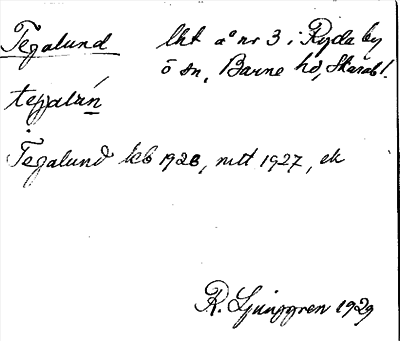 Tegalund lht å nr 3 i Ryda by
ö sn, Barne hd, Skarab l.
Tegalund kb 1926, mtl 1927, ek
R. Ljunggren 1929